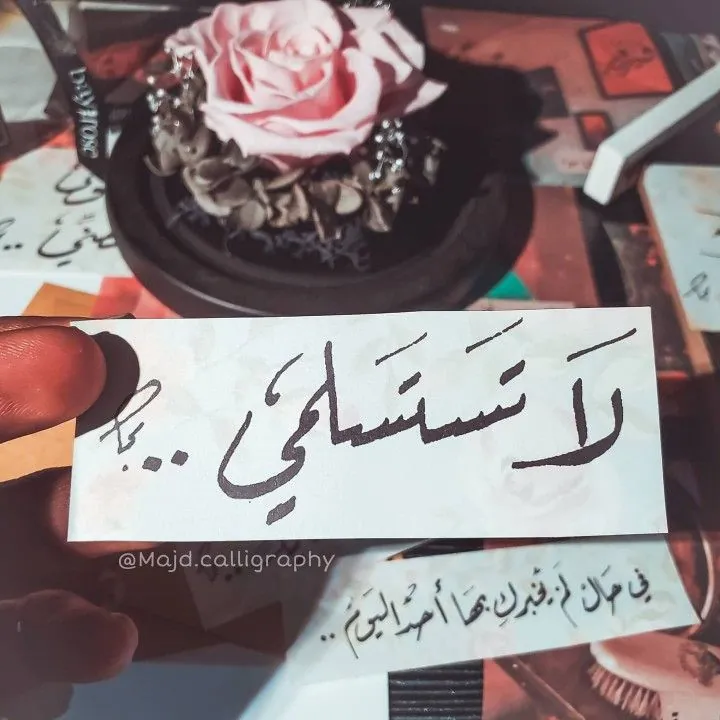 Day Rose
لَا تَسْتَسلمي ..
@Majd.calligraphy
في حال لَم يخبركِ بهَا أحدٌ اليَومَ ..